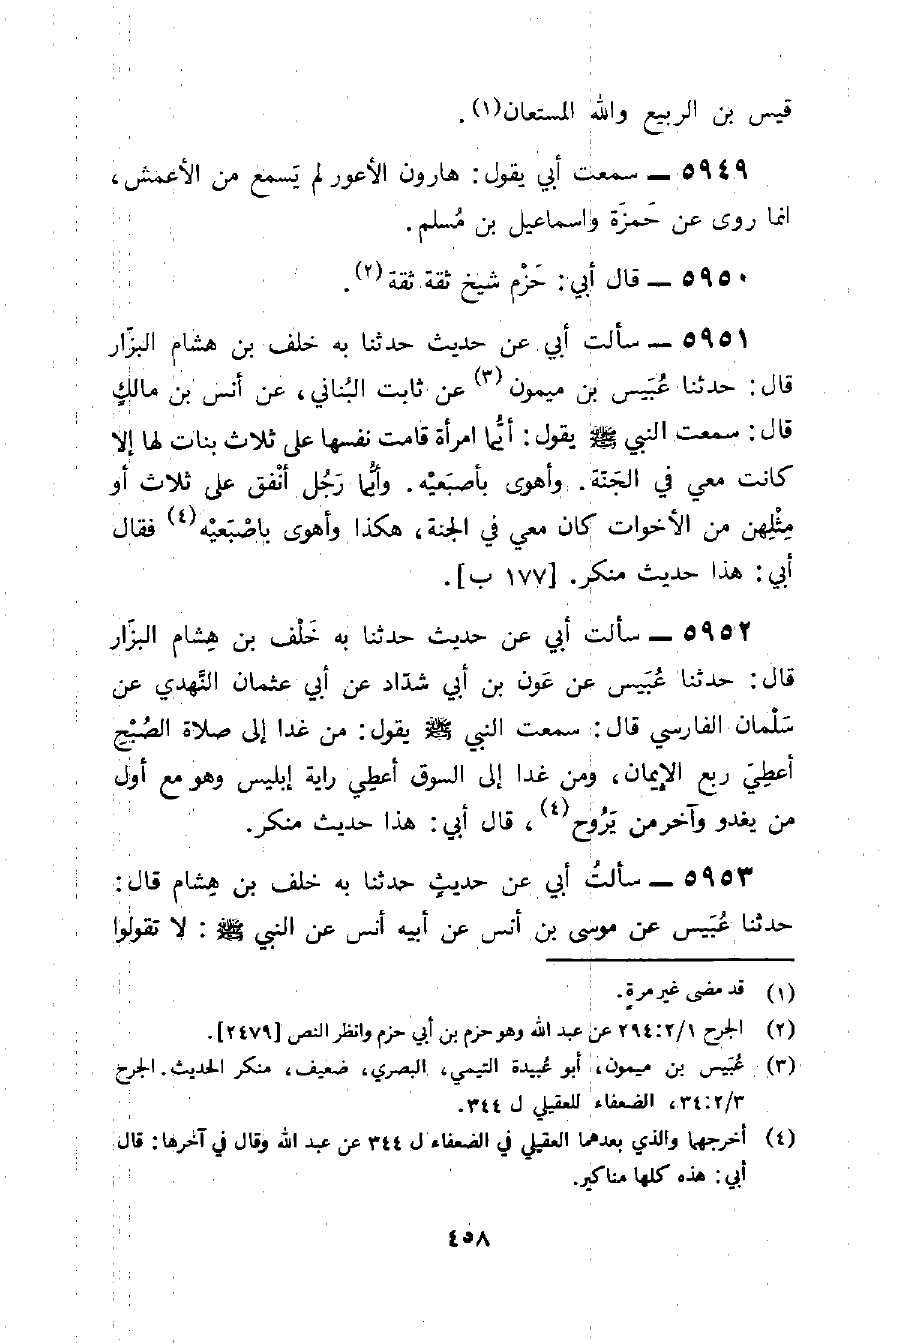 قيس بن الربيع والله المستعان(١).
٥٩٤٩ ــ سمعت أبي يقول: هارون الأعور لم يَسمع من الأعمش،
انما روى عن حَمزَة واسماعيل بن مُسلم.
٥٩٥٠ ــ قال أبي: حَزْم شيخ ثقة ثقة(٢).
٥٩٥١ ــ سألت أبي عن حديث حدثنا به خلف بن هشام البزّار
قال: حدثنا عُبَيس بن ميمون(٣) عن ثابت البُناني، عن أنس بن مالكٍ
قال: سمعت النبي ﷺ يقول: أيُّما امرأة قامت نفسها على ثلاث بنات لها إلا
كانت معي في الجَنّة. وأهوى بأصبَعيْه. وأيُّما رَجُل أنْفق على ثلاث أو
مِثْلِهن من الأخوات كان معي في الجنة، هكذا وأهوى باصْبَعيْه(٤) فقال
أبي: هذا حديث منكر. [١٧٧ ب].
٥٩٥٢ ــ سألت أبي عن حديث حدثنا به خَلْف بن هِشام البزّار
قال: حدثنا عُبَيس عن عَون بن أبي شدّاد عن أبي عثمان النَّهدي عن
سَلْمان الفارسي قال: سمعت النبي ﷺ يقول: من غدا إلى صلاة الصُبْح
أعطِيَ ربع الإيمان، ومن غدا إلى السوق أعطِي راية إبليس وهو مع أول
من يغدو وآخر من يَرُوح(٤)، قال أبي: هذا حديث منكر.
٥٩٥٣ ــ سألتُ أبي عن حديثٍ حدثنا به خلف بن هِشام قال:
حدثنا عُبَيس عن موسى بن أنس عن أبيه أنس عن النبي ﷺ: لا تقولوا
(١) قد مضى غير مرةٍ.
(٢) الجرح ٢٩٤:٢/١ عن عبد الله وهو حزم بن أبي حزم وانظر النص [٢٤٧٩].
(٣) عُبَيس بن ميمون، أبو عُبيدة التيمي، البصري، ضعيف، منكر الحديث. الجرح
٣٤:٢/٣، الضعفاء للعقيلي ل ٣٤٤.
(٤) أخرجهما والذي بعدهما العقيلي في الضعفاء ل ٣٤٤ عن عبد الله وقال في آخرها: قال
أبي: هذه كلها مناكير.
٤٥٨